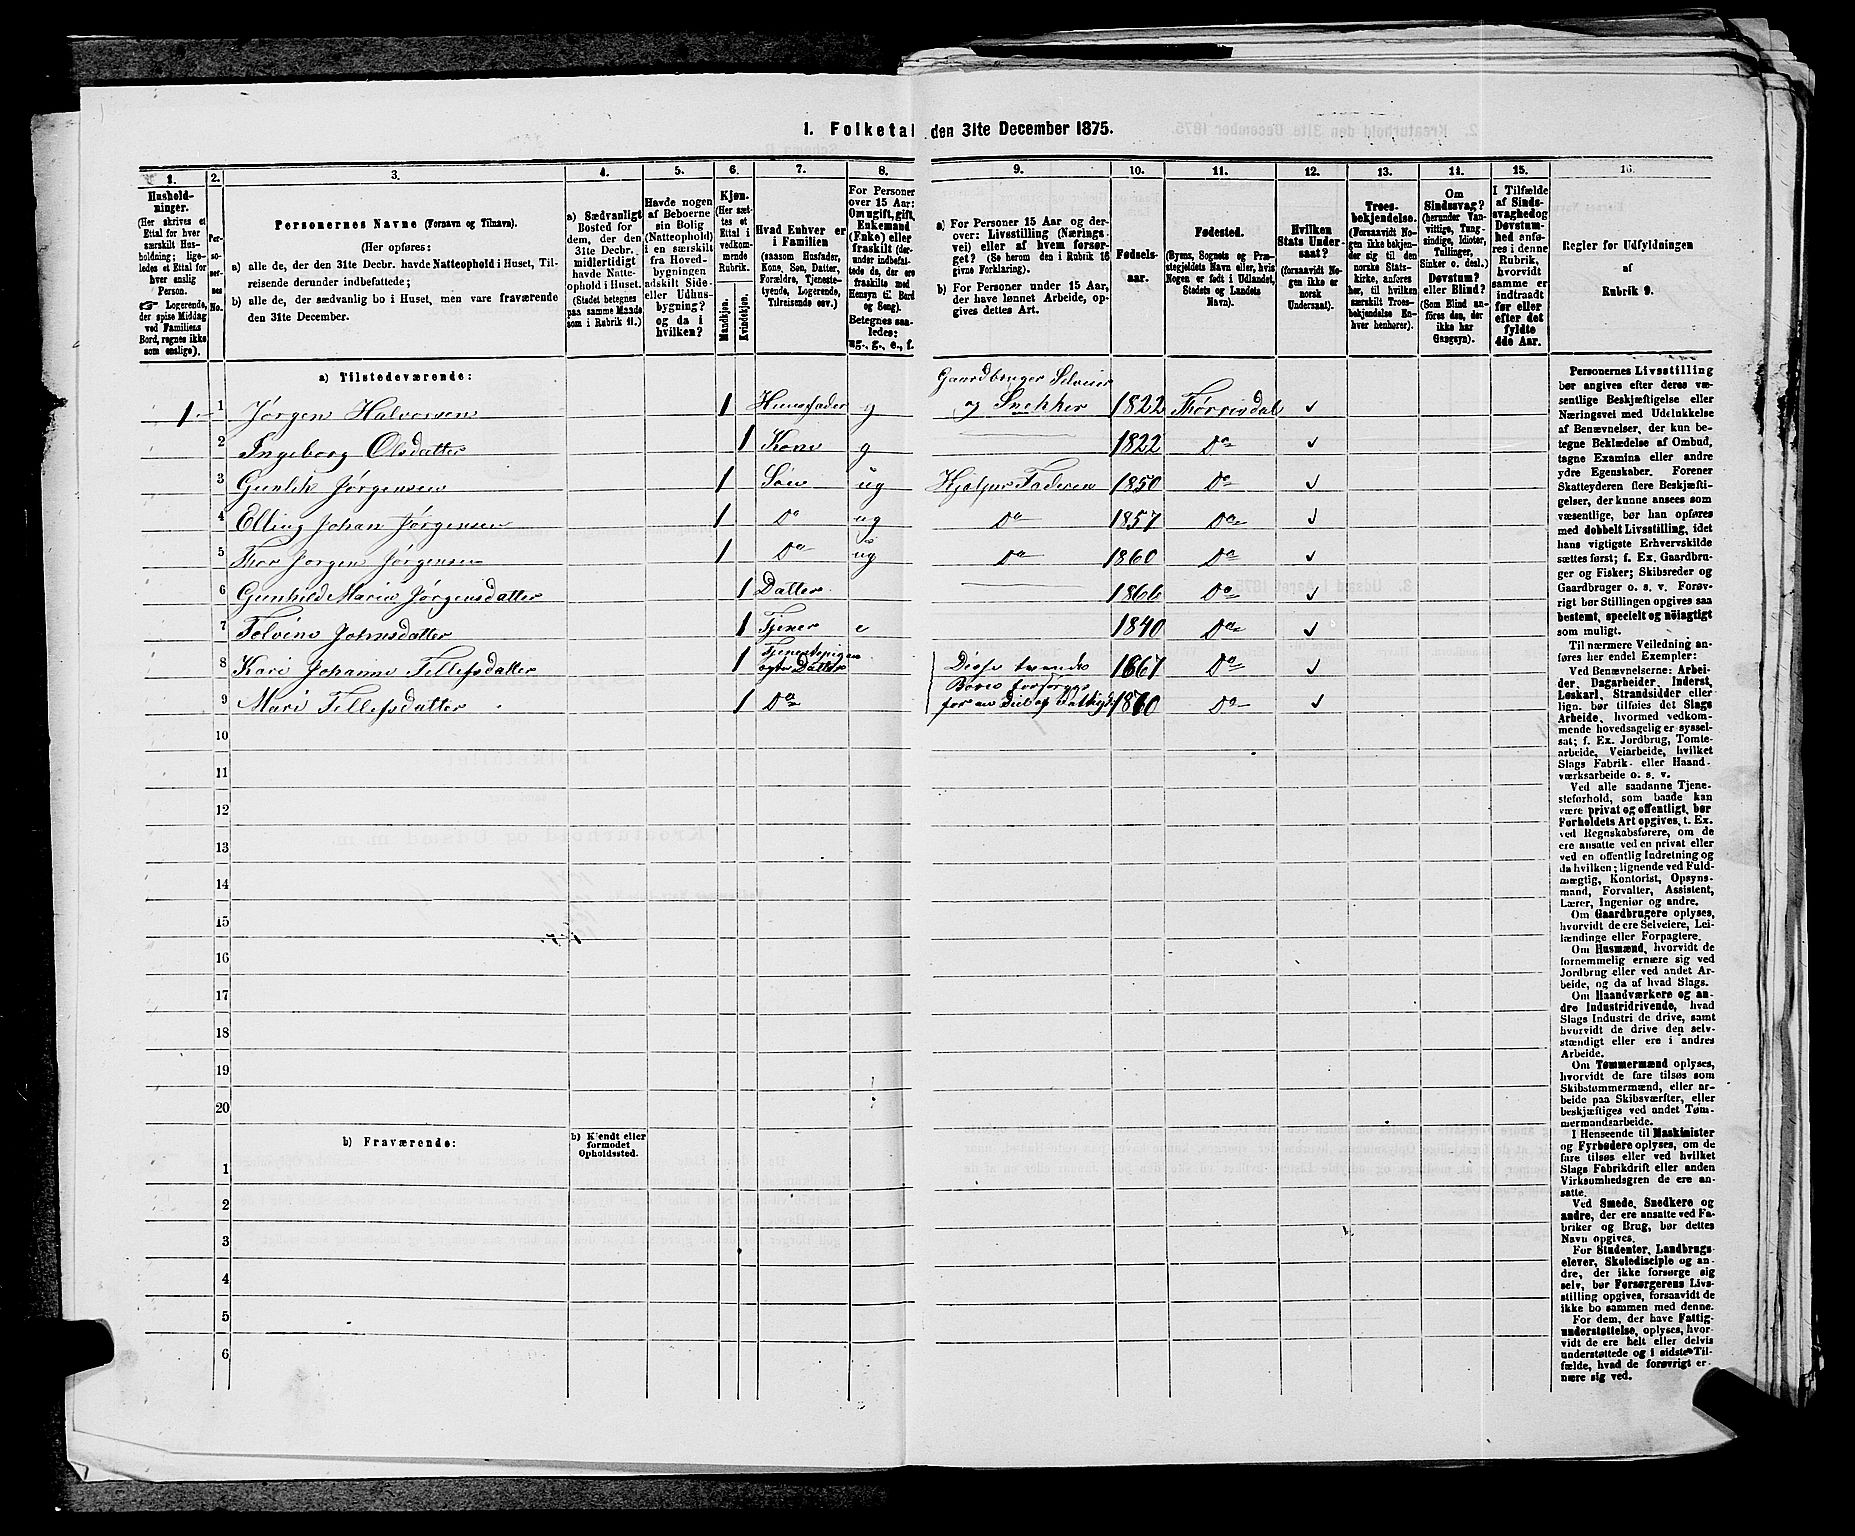 1. Folketal den 31te December 1875.
1. 2. 3. 4. 5. 6. 7. 8. 9. 10. 11. 12. 13. 14. 15. 16.
Husholdninger.
(Her skrives et Ettal for hver særskilt Husholdning; ligeledes et Ettal for hver enslig Person.
☞ Logerende, der spise Middag ved Familiens Bord, regnes ikke som enslige).
Personernes No.
Personernes Navne (Fornavn og Tilnavn).
(Her opføres:
a) alle de, der den 31te Decbr. havde Natteophold i Huset, Tilreisende derunder indbefattede;
b) alle de, der sædvanlig bo i Huset, men vare fraværende den 31te December.
a) Sædvanligt Bosted for dem, der den 31te Decbr. midlertidigt havde Natteophold i Huset.
(Stedet betegnes paa samme Maade som i Rubrik 11.)
Havde nogen af Beboerne sin Bolig (Natteophold) i en særskilt fra Hovedbygningen adskilt Side- eller Udhusbygning? og da i hvilken?
Kjøn.
(Her sættes et Ettal i vedkommende Rubrik.
Mandkjøn.
Kvindekjøn.
Hvad Enhver er i Familien
(saasom Husfader, Kone, Søn, Datter, Forældre, Tjenestetyende, Logerende, Tilreisende osv.)
For Personer over 15 Aar: Om ugift, gift, Enkemand (Enke) eller fraskilt
Betegnes saaledes: ug., g., e., f.
a) For Personer 15 Aar og derover: Livsstilling (Næringsvei) eller af hvem forsørget? (Se herom den i Rubrik 16 givne Forklaring).
b) For Personer under 15 Aar, der have lønnet Arbeide, opgives dettes Art.
Fødselsaar.
Fødested.
(Byens, Sognets og Præstegjeldets Navn eller, hvis Nogen er født i Udlandet, Stedets og Landets Navn).
Hvilken Stats Undersaat?
(forsaavidt Nogen ikke er norsk Undersaat).
Troesbekjendelse.
(Forsaavidt Nogen ikke bekjender sig til den norske Statskirke, anføres her, til hvilken særskilt Troesbekjendelse Enhver henhører).
Om Sindssvag? (herunder Vanvittige, Tungsindige, Idioter, Tullinger, Sinker o. desl.) Døvstum? eller Blind?
(Som Blind anføres den, der ikke har Gangsyn).
I Tilfælde af Sindssvaghed og Døvstumhed anføres i denne Rubrik, hvorvidt samme er indtraadt før eller efter det fyldte 4de Aar.
Regler for Udfyldningen af Rubrik 9.
a) Tilstedeværende:
Gaardbruger Selveier
1 1 Jørgen Halvorsen 1 Huusfader g og Snekker 1822 Thørrisdal
2 Ingeborg Olsdatter 1 Kone g 1822 Do
3 Gunlek Jørgensen 1 Søn ug Hjelper Faderen 1850 Do
4 Elling Johan Jørgensen 1 Do ug Do 1857 Do
5 Thor Jørgen Jørgensen 1 Do ug Do 1860 Do
6 Gunhild Marie Jørgensdatter 1 Datter 1866 Do
7 Tolvine Johnsdatter 1 Tjener e 1840 Do
8 Kari Johanne Tellefsdatter 1 Tjenestepigens Datter Disse tvende 1867 Do
9 Mari Tellefsdatter 1 Do Børn forsørges for en Deel af 1870 Do
10
11
12
13
14
15
16
17
18
19
20
b) Fraværende:
b) Kjendt eller formodet Opholdssted.
1
2
3
4
5
6
Personernes Livsstilling
bør angives efter deres væ-
sentlige Beskjæftigelse eller
Næringsvei med Udelukkelse
af Benævnelser, der kun be-
tegne Beklædelse af Ombud,
tagne Examina eller andre
ydre Egenskaber. Forener
Skatteyderen flere Beskjæfti-
gelser, der kunne ansees som
væsentlige, bør han opføres
med dobbelt Livsstilling, idet
hans vigtigste Erhvervskilde
sættes først; f. Ex. Gaardbru-
ger og Fisker; Skibsreder og
Gaardbruger o. s. v. Forøv-
rigt bør Stillingen opgives saa
bestemt, specielt og nöiagtigt
som muligt.
Til nærmere Veiledning an-
føres her endel Exempler:
Ved Benævnelserne: Arbei-
der, Dagarbeider, Inderst,
Løskarl, Strandsidder eller
lign. bør tilføies det Slags
Arbeide, hvormed vedkom-
mende hovedsagelig er syssel-
sat; f. Ex. Jordbrug, Tomte-
arbeide, Veiarbeide, hvilket
Slags Fabrik- eller Haand-
værksarbeide o. s. v.
Ved alle saadanne Tjene-
steforhold, som baade kan
være privat og offentligt, bør
Forholdets Art opgives, t. Ex.
ved Regnskabsførere, om de
ere ansatte ved en privat eller
ved en offentlig Indretning og
da hvilken; lignende ved Fuld-
mægtig, Kontorist, Opsyns-
mand, Forvalter, Assistent,
Lærer, Ingeniør og andre.
Om Gaardbrugere oplyses,
hvorvidt de ere Selveiere, Lei-
lændinge eller Forpagtere.
Om Husmænd, hvorvidt de
fornemmelig ernære sig ved
Jordbrug eller ved andet Ar-
beide, og da af hvad Slags.
Om Haandværkere og an-
dre Industridrivende, hvad
Slags Industri de drive, samt
hvorvidt de drive den selv-
stændigt eller ere i andres
Arbeide.
Om Tømmermænd oplyses,
hvorvidt de fare tilsøs som
Skibstømmermænd, eller ar-
beide paa Skibsværfter, eller
beskjæftiges ved andet Tøm-
mermandsarbeide.
I Henseende til Maskinister
og Fyrbødere oplyses, om de
fare tilsøs eller ved hvilket
Slags Fabrikdrift eller anden
Virksomhedsgren de ere an-
satte.
Ved Smede, Snedkere og
andre, der ere ansatte ved Fa-
briker og Brug, bør dettes
Navn opgives.
For Studenter, Landbrugs-
elever, Skoledisciple og an-
dre, der ikke forsørge sig
selv, bør Forsørgerens Livs-
stilling opgives, forsaavidt de
ikke bo sammen med denne.
For dem, der have Fattig-
understøttelse, oplyses, hvor-
vidt de ere helt eller delvis
understøttede og i sidste Til-
fælde, hvad de forøvrigt er-
nære sig ved.